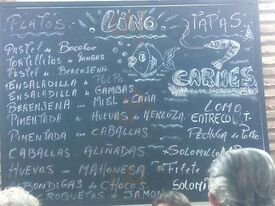 PLATOS. LINO TAPAS.
Pastel de Bacalao
Tortillitas de Gambas
Pastel de BERENJENA
ENSALADILLA de PULPO
ENSALADILLA de GAMBAS
BERENJENA con MIEL de CAÑA
PIMENTADA de HUEVAS de MERLUZA
PIMENTADA con CABALLAS
CABALLAS ALIÑADAS
HUEVOS con MAHONESA
ALBONDIGAS de CHOCOS
CROQUETAS de JAMON
CARNES
LOMO
ENTRECOT
PECHUGA de Pollo
SOLOMILLO
Filete
SOLOMI